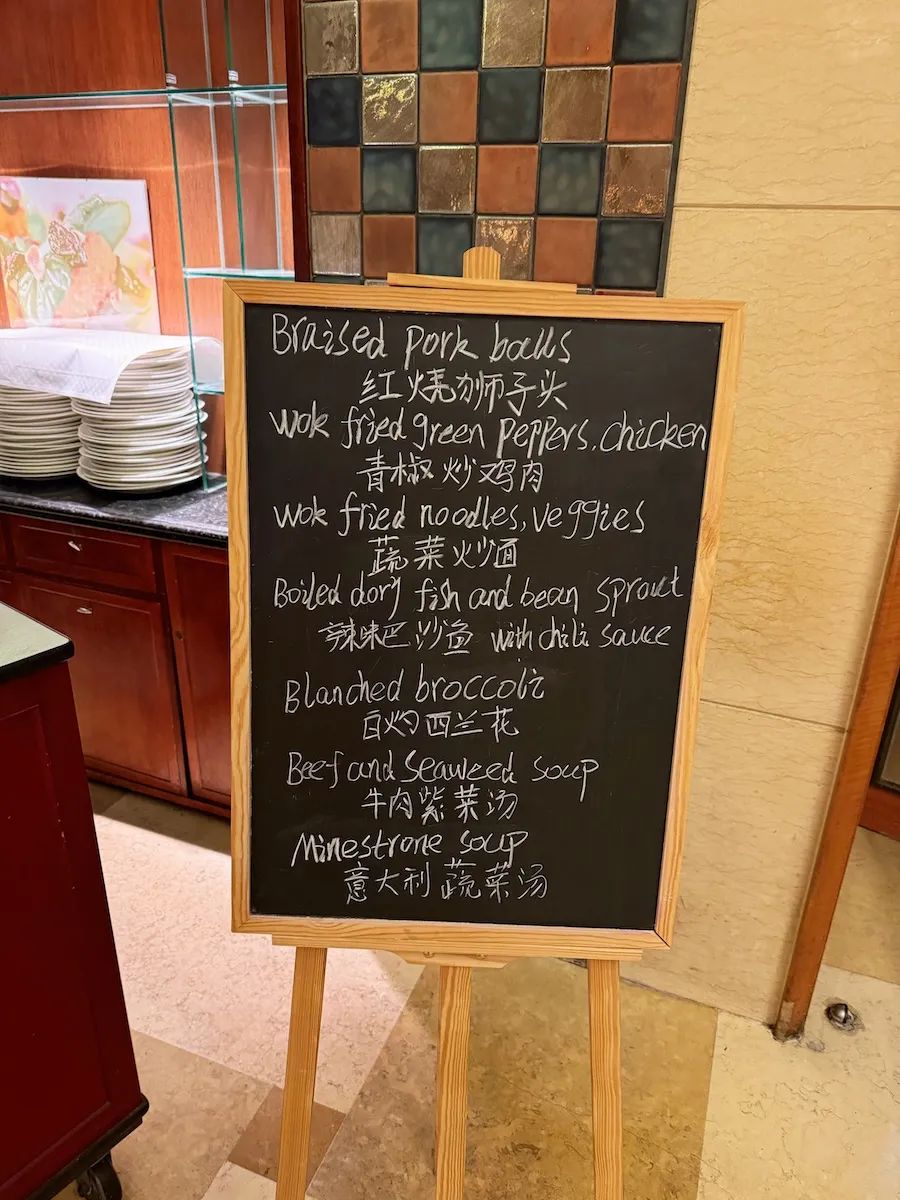 Braised pork balls
红烧狮子头
wok fried green peppers, chicken
青椒炒鸡肉
wok fried noodles, veggies
蔬菜炒面
Boiled dory fish and bean sprout
辣味巴沙鱼 with chili sauce
Blanched broccoli
白灼西兰花
Beef and Seaweed soup
牛肉紫菜汤
Minestrone soup
意大利蔬菜汤